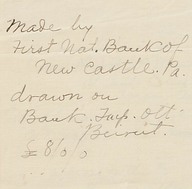 Made by
First Nat. Bank of
New Castle. Pa.
drawn on
Bank. Imp. Ott.
Beirut.